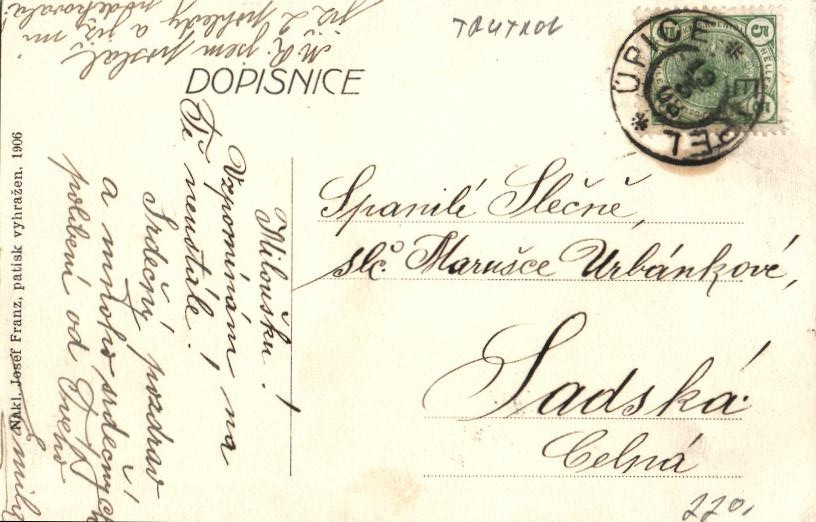 TRUTNOV
DOPISNICE
ÚPICE * EIPEL *
5 HELLER 5
Spanilé Slečně,
slč. Marušce Urbánkové,
Sadská.
Miloušku!
Vzpomínám na
Tě neustále!
Srdečný pozdrav
a mnoho srdečných
políbení od Tvého
M. R. jsem poslal
již 2 pohledy a již mi
Nákl. Josef Franz, patisk vyhražen. 1906
220,